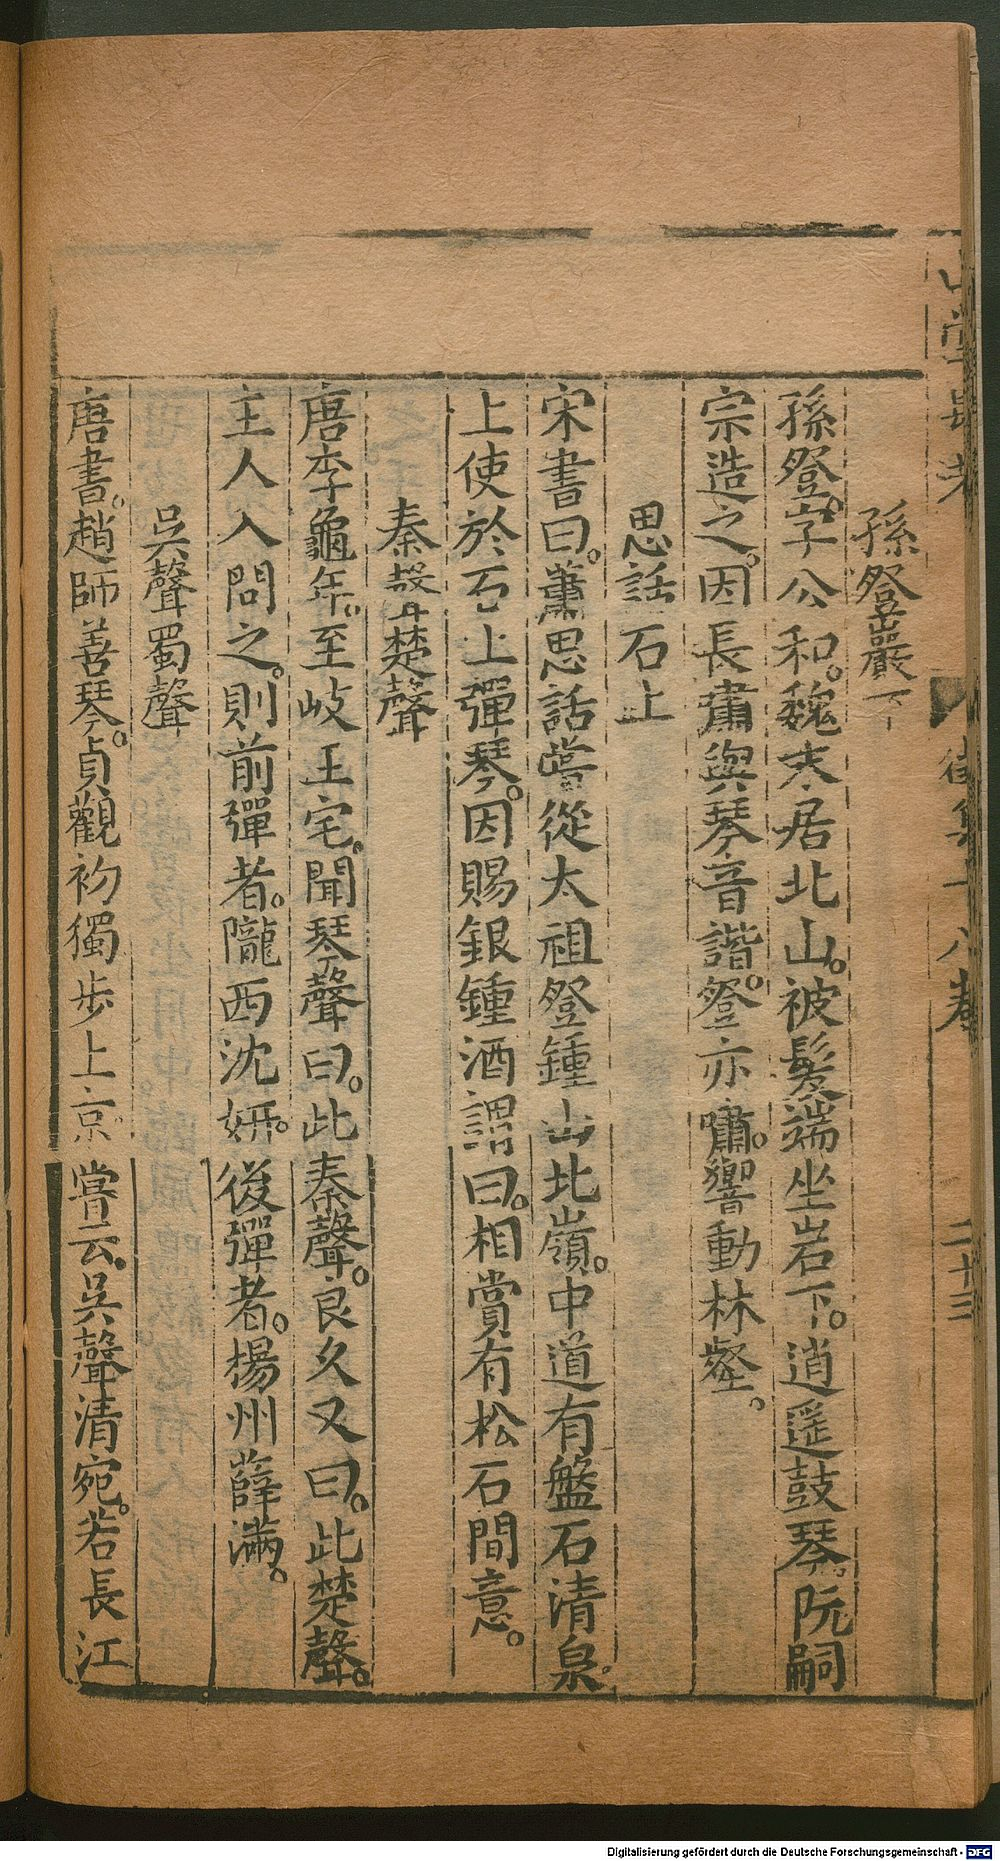 山堂肆考
徵集十八卷
二十三
孫登巖下
孫登。字公和。魏末居北山。被髮端坐岩下。逍遥鼓琴。阮嗣
宗造之。因長肅與琴音諧。登亦嘯。響動林壑。
思話石上
宋書曰。蕭思話嘗從太祖登鍾山北嶺。中道有盤石清泉。
上使於石上彈琴。因賜銀鍾酒謂曰。相賞有松石間意。
秦聲楚聲
唐李龜年。至岐王宅。聞琴聲曰。此秦聲。良久又曰。此楚聲。
主人入問之。則前彈者。隴西沈妍。後彈者。楊州薛滿。
吳聲蜀聲
唐書。趙師善琴。貞觀初獨步上京。嘗云。吳聲清宛。若長江
Digitalisierung gefördert durch die Deutsche Forschungsgemeinschaft - DFG